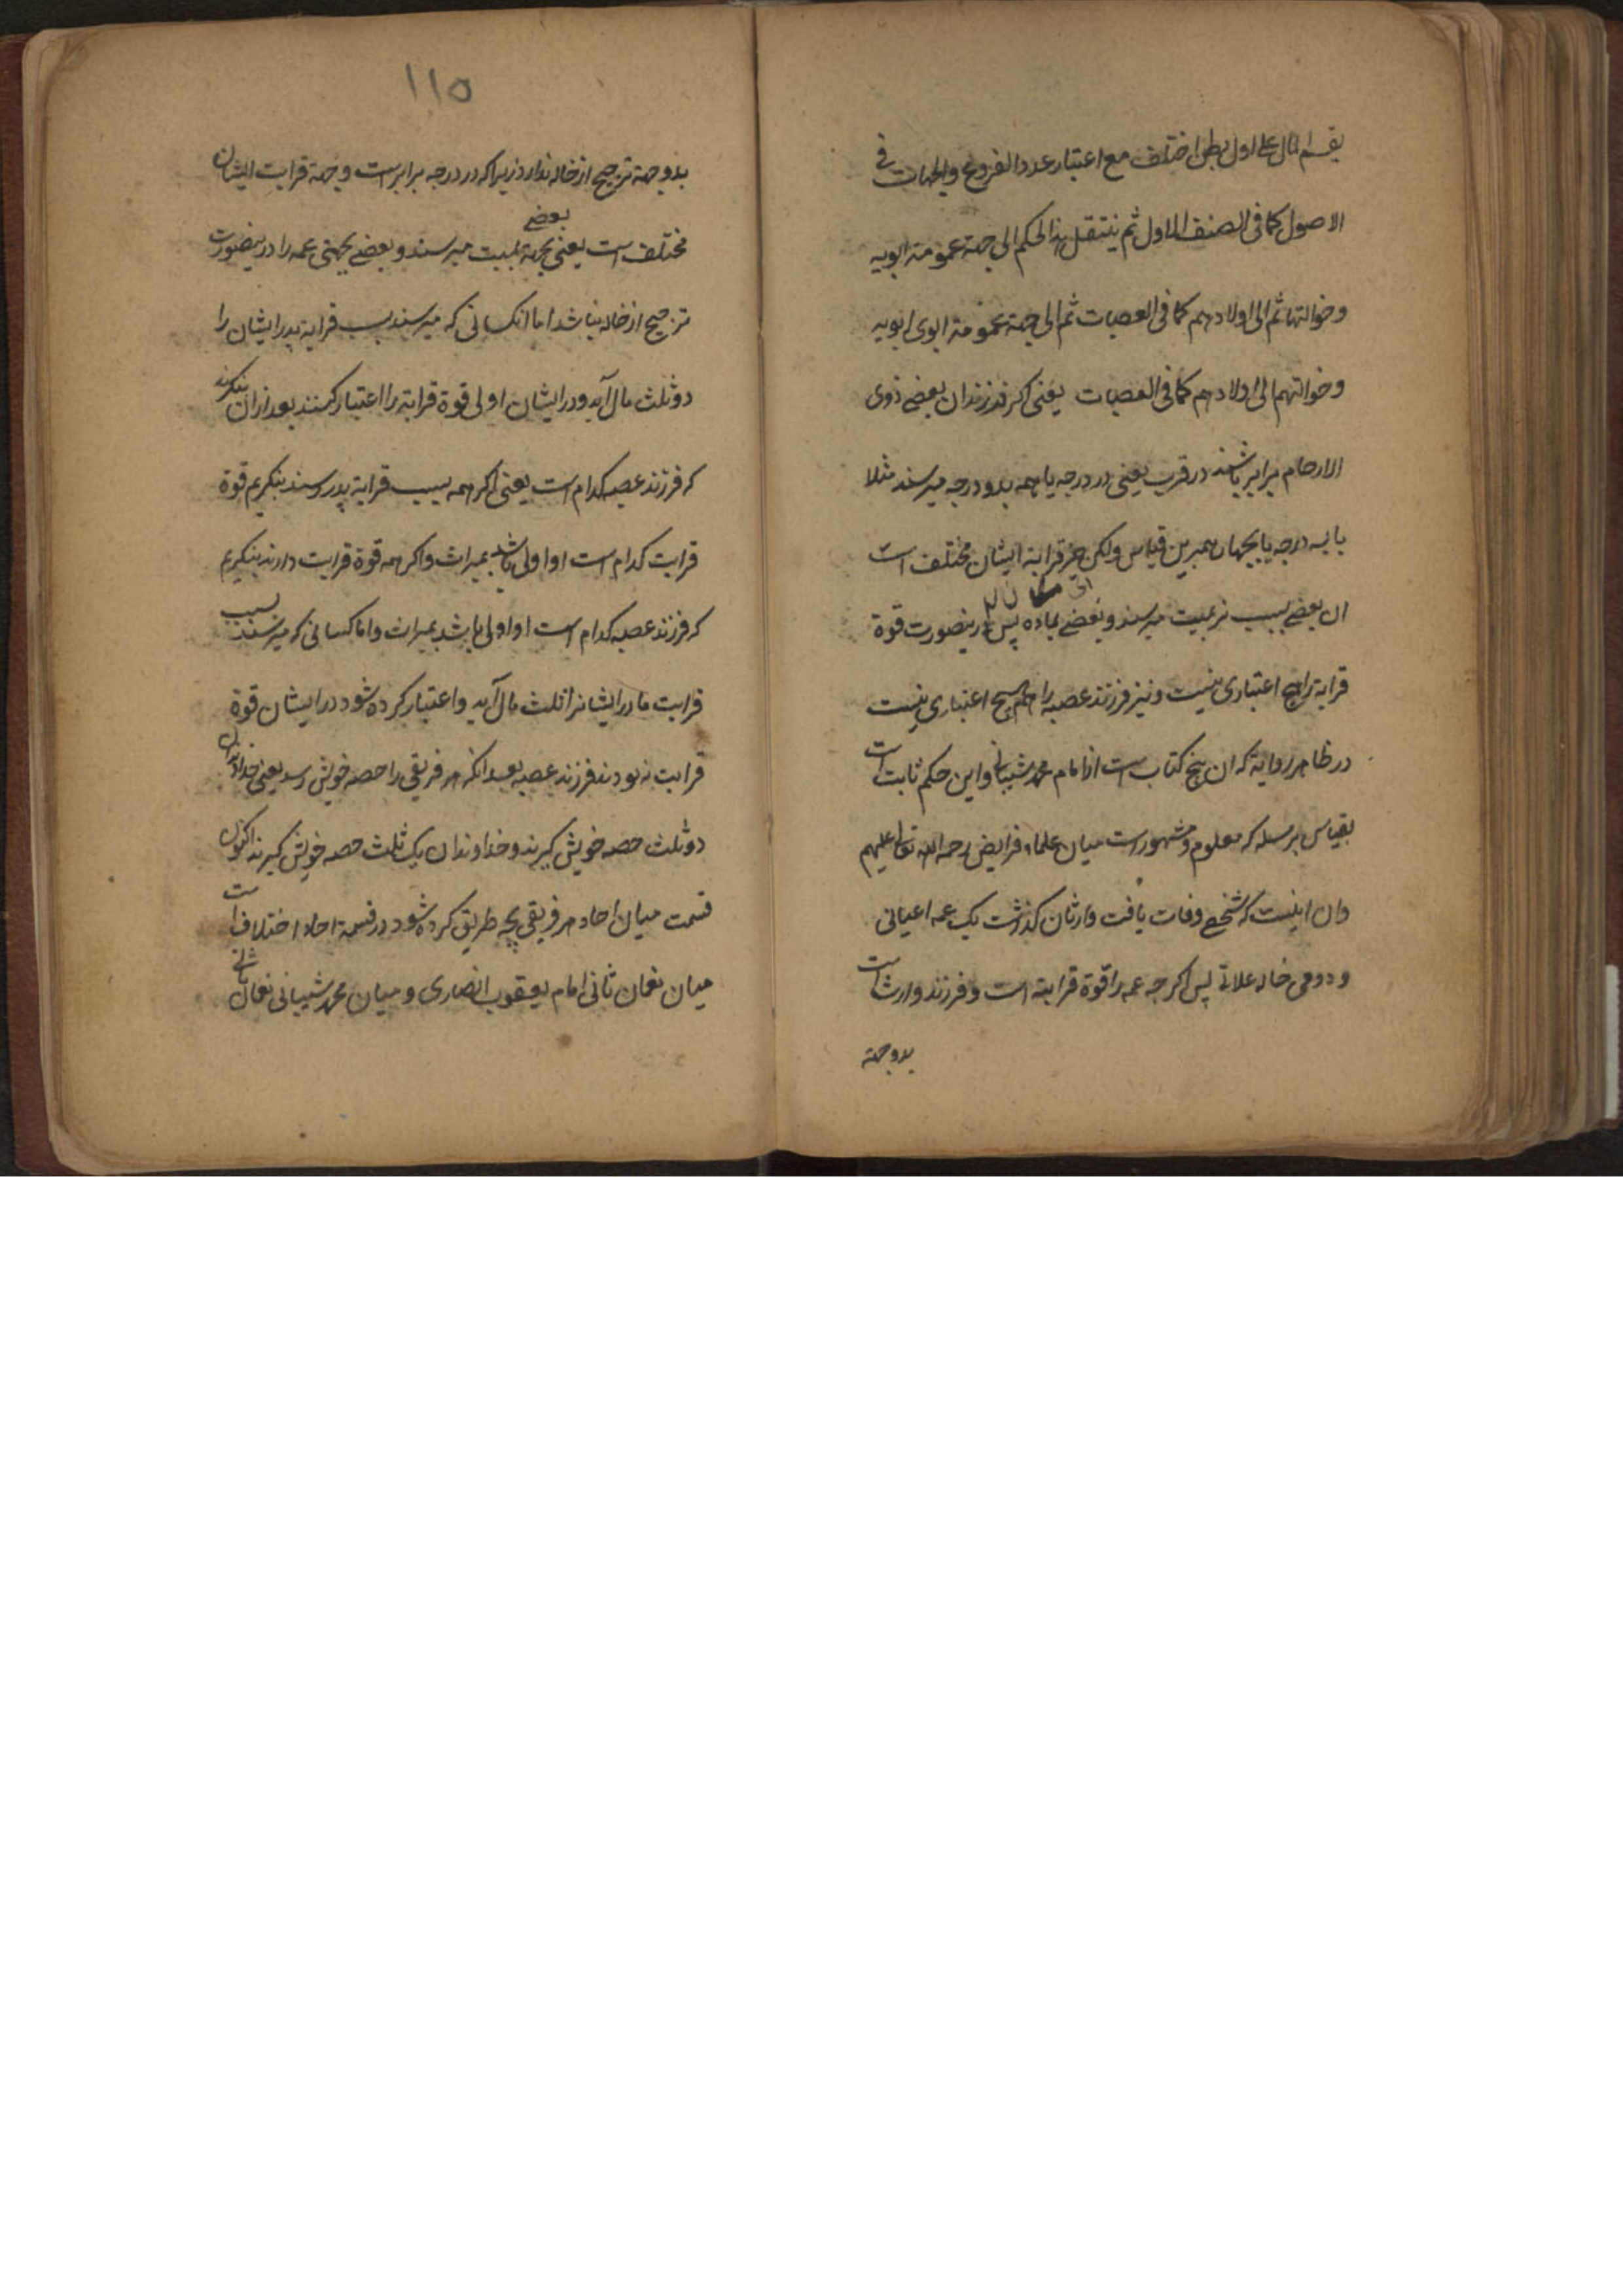 یقسم المال علی اول بطن اختلف مع اعتبار عدد الفروع والجهات فی
الاصول کما فی الصنف الاول ثم ینتقل هذا الحکم الی جهة عمومة ابویه
وخوالتهما ثم الی اولادهم کما فی العصبات ثم الی جهة عمومة ابوی ابویه
وخوالتهم الی اولادهم کما فی العصبات یعنی اکر فرزندان بعضی ذوی
الارحام برابر باشند در قرب یعنی در درجه یا همه بدو درجه میرسند مثلا
یا بسه درجه یا بچهار همبرین قیاس ولکن قرابة ایشان مختلف است
ان بعضی بسبب نر بمیت میرسند و بعضی بماده پس درینصورت قوة
قرابة را هیچ اعتباری نیست و نیز فرزند عصبه را هم هیچ اعتباری نیست
در ظاهر روایة که ان پنج کتاب است از امام محمد شیبانی و این حکم ثابت است
بقیاس بر مسله که معلوم و مشهور است میان علماء فرایض رحمه الله تعالی علیهم
وان اینست که شخصی وفات یافت وارثان کذاشت یک عمه اعیانی
و دومی خاله علاتی پس اکر چه عمه را قوة قرابته است و فرزند وارث است
بدوجهة
۱۱۵
بدوجهة ترجیح از خاله ندارد زیرا که در درجه برابر است و جهة قرابت ایشان
مختلف است یعنی بعضی بجهة بمیت میرسند و بعضی بجهتی عمه را درینصورت
ترجیح از خاله نباشد اما انکسانی که میرسند بسبب قرابة پدر ایشان را
دو ثلث مال آید و در ایشان اولی قوة قرابة را اعتبار کنند بعد ازان بنکرند
که فرزند عصبه کدام است یعنی اکر همه بسبب قرابة پدر رسند بنکریم قوة
قرابت کدام است او اولی باشد بمیراث واکر همه قوة قرابت دارند بنکریم
که فرزند عصبه کدام است او اولی باشد بمیراث واما کسانی که میرسند بسبب
قرابت مادر ایشانرا ثلث مال آید واعتبار کرده شود در ایشان قوة
قرابت نه بودند فرزند عصبه بعد انکه هر فریقی را حصه خویش رسد یعنی خداوندان
دو ثلث حصه خویش کیرند و خداوندان یک ثلث حصه خویش کیرند اکنون
قسمت میان احاد هر فریقی بچه طریق کرده شود در قسمة احاد اختلاف است
میان نعمان ثانی امام یعقوب انصاری و میان محمد شیبانی نعمان ثانی